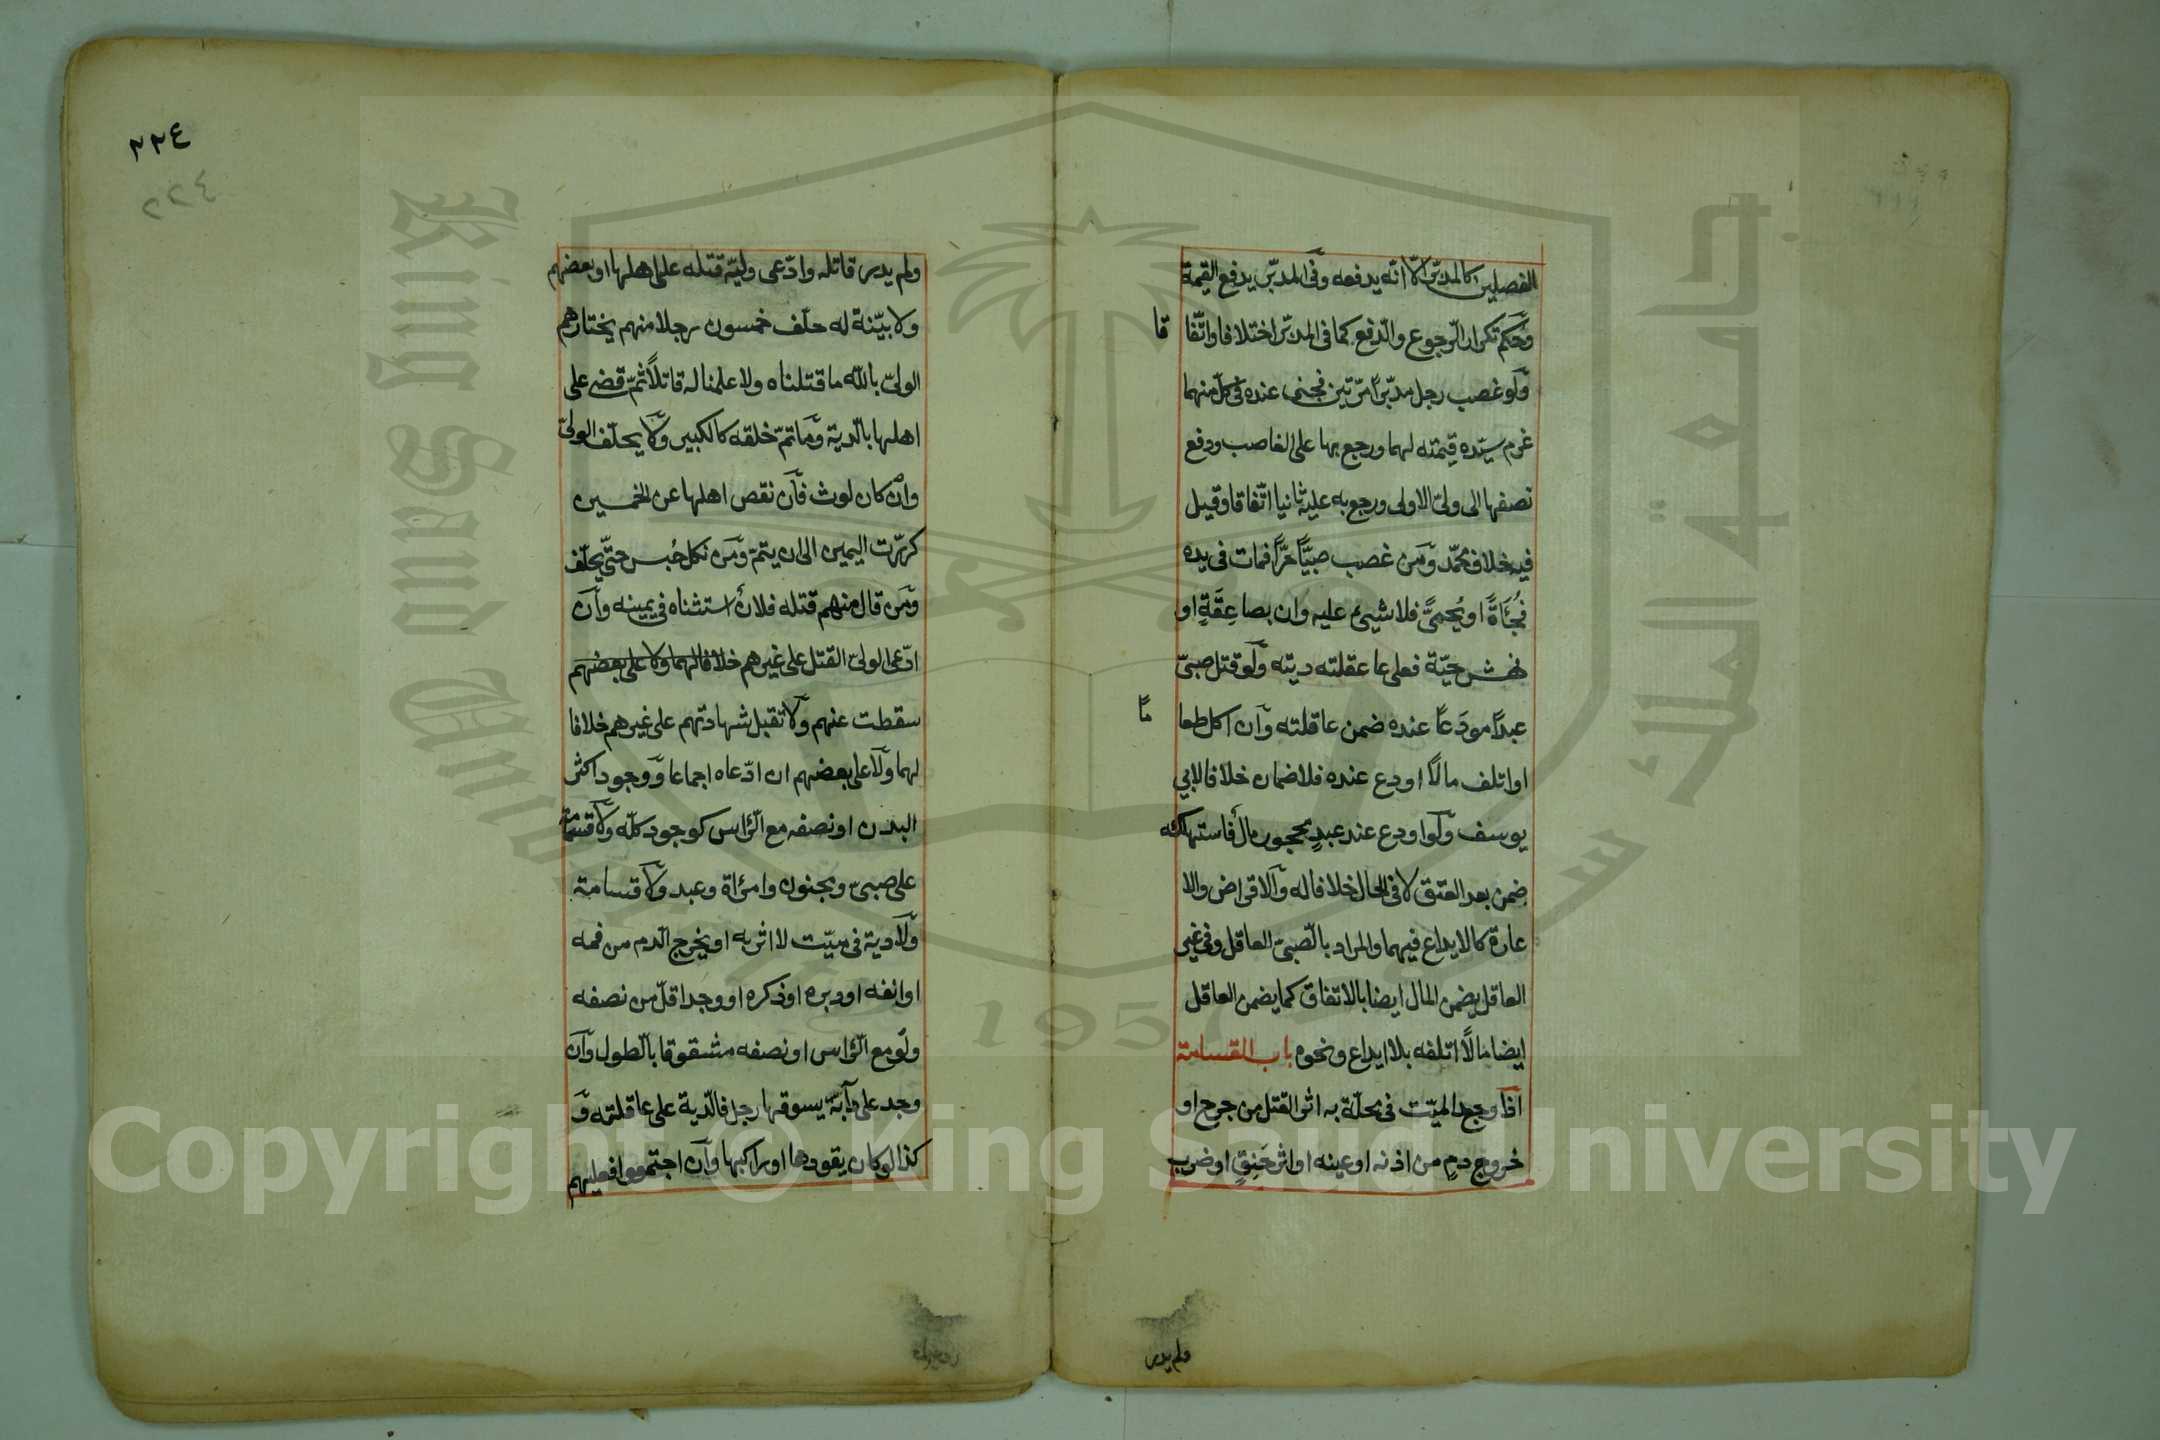 الفصلين كالمدبّر الّا انّه يدفعه وفى المدبّر يدفع القيمة
وحكم تكرار الرّجوع والدّفع كما فى المدبّر اختلافا واتّفا
قا
ولو غصب رجل مدبّرا مرّتين فجنى عنده فى كلّ منهما
غرم سيّده قيمته لهما ورجع بها على الغاصب ودفع
نصفها الى ولىّ الاولى ورجع به عليه ثانيا اتّفاقا وقيل
فيه خلاف محمّد ومن غصب صبيّا حرّا فمات فى يده
فُجأةً او بحمىّ فلا شيئ عليه وان بصاعِقَةٍ او
نهش حيّة فعلى عاقلته ديته ولو قتل صبىّ
عبدًا مودَعًا عنده ضمن عاقلته وان اكل طعا
مًا
او اتلف مالًا اودع عنده فلا ضمان خلافا لابي
يوسف ولو اودع عند عبدٍ محجور مالٌ فاستهلكه
ضمن بعد العتق لا فى الحال خلافا له والاقراض والا
عارة كالايداع فيهما والمراد بالصّبىّ العاقل وفى غير
العاقل يضمن المال ايضا بالاتفاق كما يضمن العاقل
ايضا مالًا اتلفه بلا ايداع ونحوه باب القسامة
اذا وجد الميّت فى محلّة به اثر القتل من جرح او
خروج دمٍ من اذنه او عينه او اثر خَنِقٍ او ضرب
ولم يدر
٢٢٤
٢٢٤
ولم يدر قاتله وادّعى وليّه قتله على اهلها او بعضهم
ولا بيّنة له حلّف خمسون رجلا منهم يختارهم
الولىّ بالله ما قتلناه ولا علمنا له قاتلًا ثمّ قضى على
اهلها بالدّية وما تمّ خلقه كالكبير ولا يحلّف الولىّ
وان كان لوث فان نقص اهلها عن الخمسين
كرّرت اليمين الى ان يتمّ ومن نكل حُبس حتّى يحلّف
ومن قال منهم قتله فلان استثناه فى يمينه وان
ادّعى الولىّ القتل على غيرهم خلافا لهما ولا على بعضهم
سقطت عنهم ولا تقبل شهادتهم على غيرهم خلافا
لهما ولا على بعضهم ان ادّعاه اجماعا ووجود اكثر
البدن او نصفه مع الرّاس كوجود كلّه ولا قسامة
على صبىّ ومجنون وامراة وعبد ولا قسامة
ولا دية فى ميّت لا اثر به او يخرج الدّم من فمه
او انفه او دبره او ذكره او وجد اقلّ من نصفه
ولو مع الرّاس او نصفه مشقوقا بالطول وان
وجد على دابّة يسوقها رجل فالدّية على عاقلته و
كذا لو كان يقودها او راكبها وان اجتمعوا فعليهم
جامعة الملك سعود
King Saud University
1957
Copyright © King Saud University